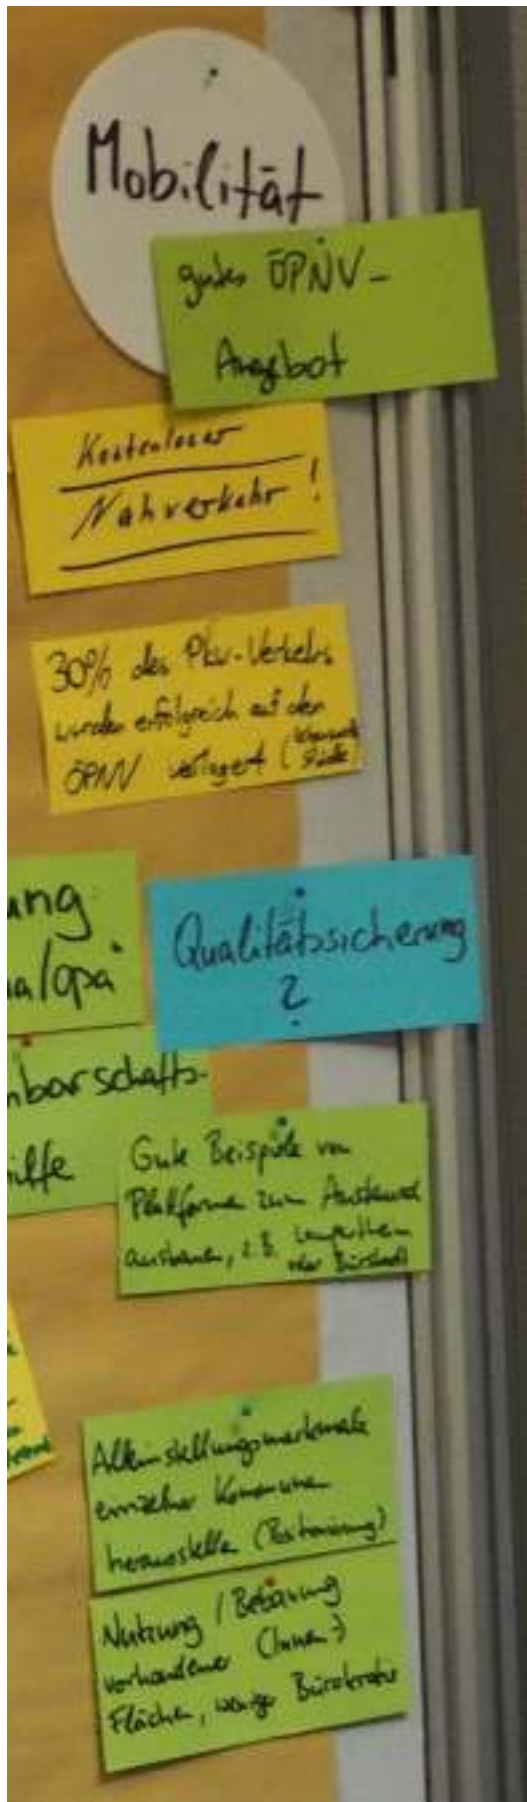 Mobilität
gutes ÖPNV-
Angebot
Kostenloser
Nahverkehr!
30% des Pkw-Verkehrs
wurden erfolgreich auf den
ÖPNV verlagert (
ung
a/Opa
Qualitätssicherung
?
nbarschafts-
ilfe
Gute Beispiele von
Plattformen zum Austausch
ausbauen, z.B. Lampertheim
oder Bürstadt
Alleinstellungsmerkmale
einzelner Kommunen
herausstellen
Nutzung / Bebauung
vorhandener (Innen-)
Flächen, weniger Bürokratie